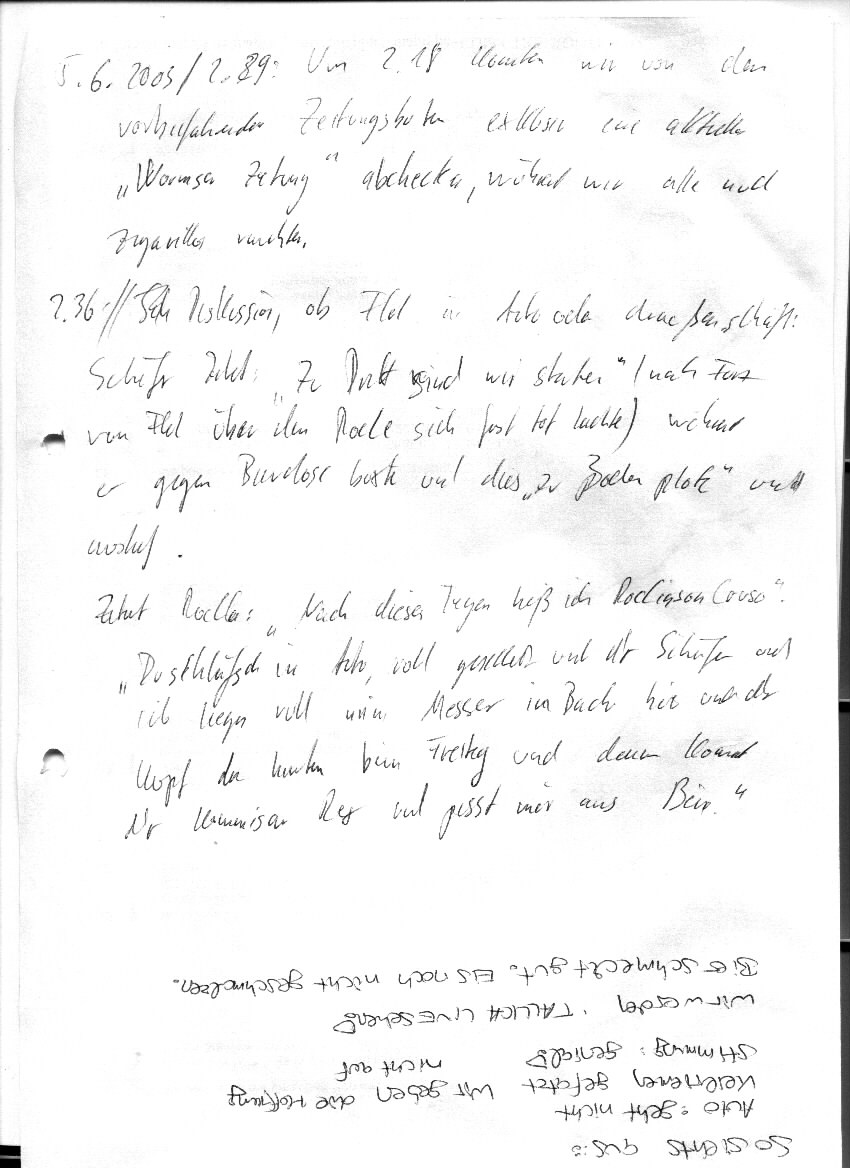 5.6.2005/2.39: Um 2.18 konnten wir von dem
vorbeifahrenden Zeitungsboten exklusiv eine aktuelle
„Wormser Zeitung" abchecken, während wir alle noch
Zigarillos rauchten.
2.36 // Diskussion, ob Flel in Auto oder draußen schläft:
Schäfer Zitat: „Zu Dritt sind wir starken" (nach Furz
von Flel über den Rocle sich fast tot lachte) während
er gegen Bierdose boxte und dies „zu Boden platz" und
auslief.
Zitat Rocller: „Nach diesen Tagen heiß ich Roclinson Couso".
„Du schläfsch im Auto, voll und dr Schäfer und
ich liegen voll mim Messer im Bach hie und dr
Kopf da hinten beim Freitag und dann kommt
dr Kommisar Rex und pisst mir aus Bein."
SO SIEHTS AUS:
Auto: geht nicht
Keilriemen gefetzt wir geben die Hoffnung
nicht auf
Stimmung: genial
wir werden TALLICA LIVE sehen
Bier schmeckt gut. EIS noch nicht geschmolzen.